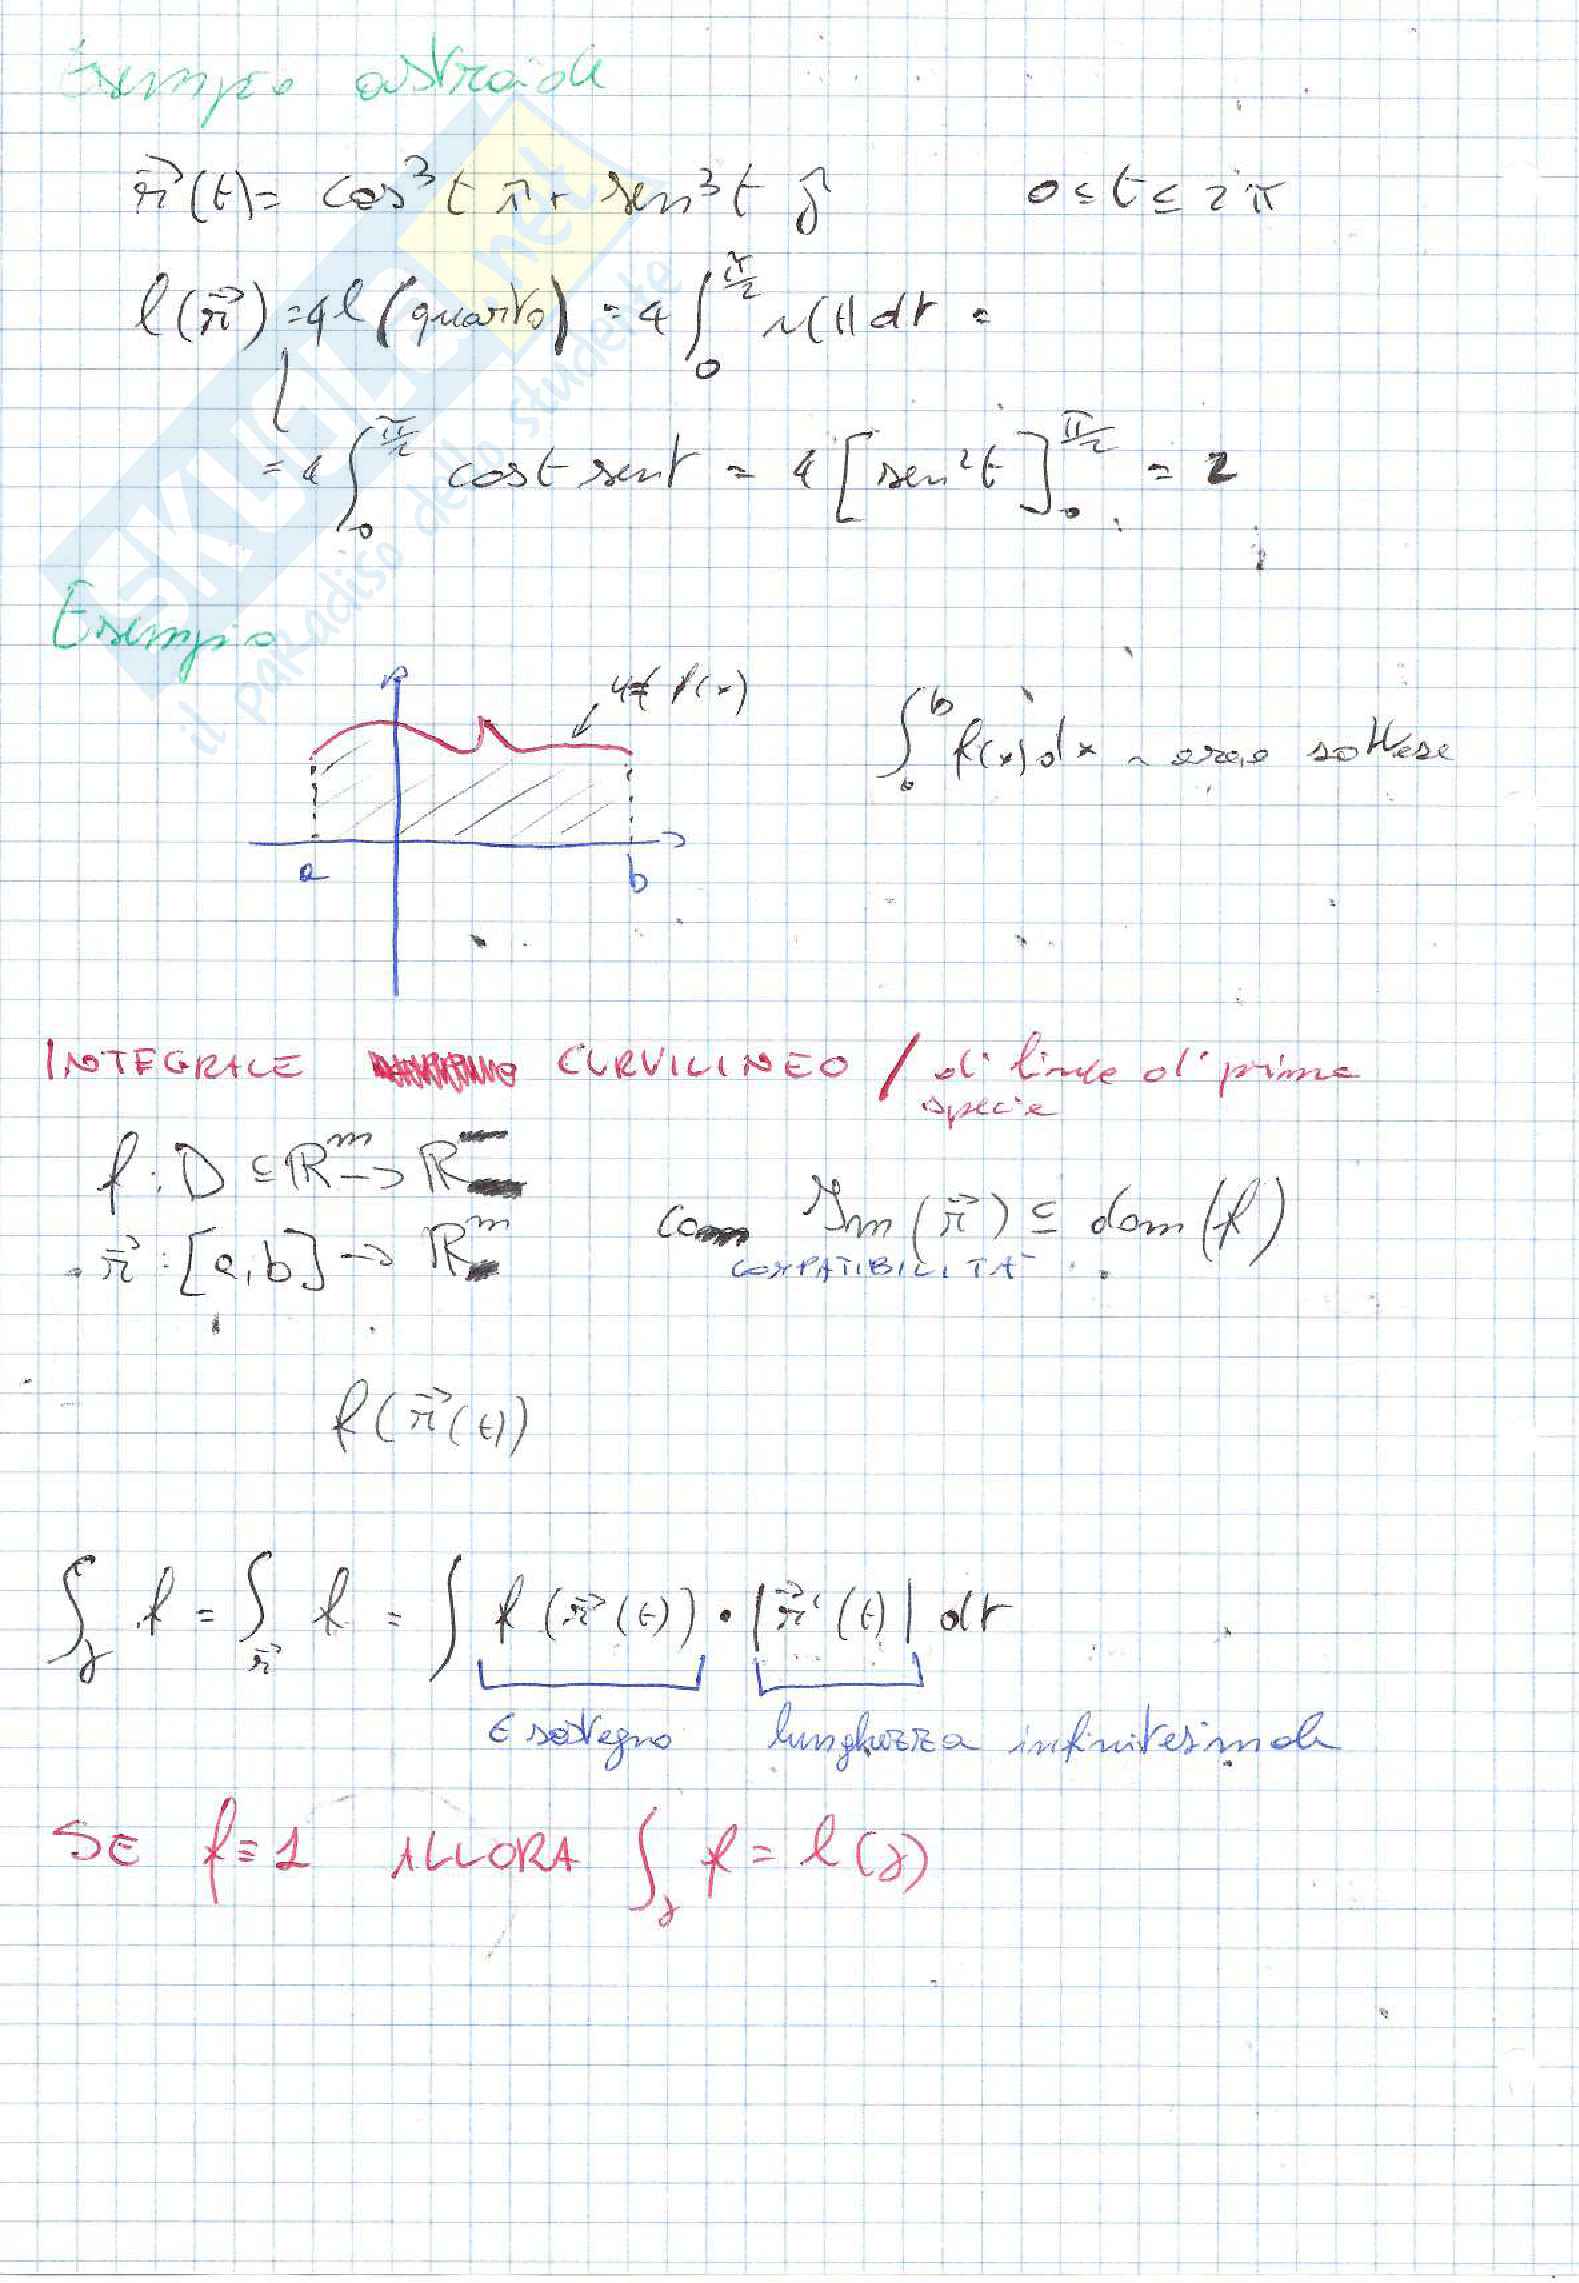 Esempio astroide
r⃗(t)= cos³t i + sen³t j 0≤t≤2π
l(r⃗) = 4l(quarto) = 4∫₀^{π/2} v(t) dt =
= 4∫₀^{π/2} cost sent = 4[sen²t]₀^{π/2} = 2
Esempio
f(x)
∫ₐᵇ f(x)dx ~ area sottesa
a b
INTEGRALE CURVILINEO / di linea di prima
specie
f: D ⊆ ℝᵐ → ℝ
r⃗: [a,b] → ℝᵐ con Im(r⃗) ⊆ dom(f)
COMPATIBILITÀ
f(r⃗(t))
∫_γ f = ∫_r⃗ f = ∫ f(r⃗(t)) · |r⃗'(t)| dt
∈ sostegno lunghezza infinitesimale
SE f=1 ALLORA ∫_γ f = l(γ)
SKUOLA.net
il paradiso dello studente